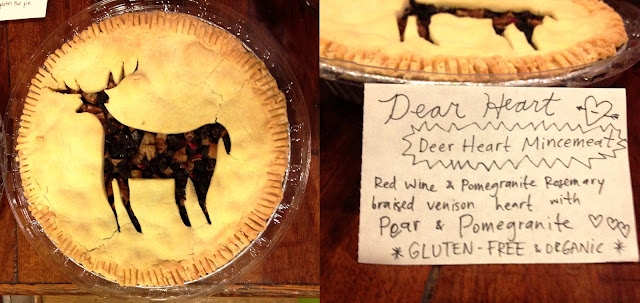 gluten free pie
Dear Heart
Deer Heart Mincemeat
Red Wine & Pomegranite Rosemary
braised venison heart with
Pear & Pomegranite
* GLUTEN-FREE & ORGANIC *